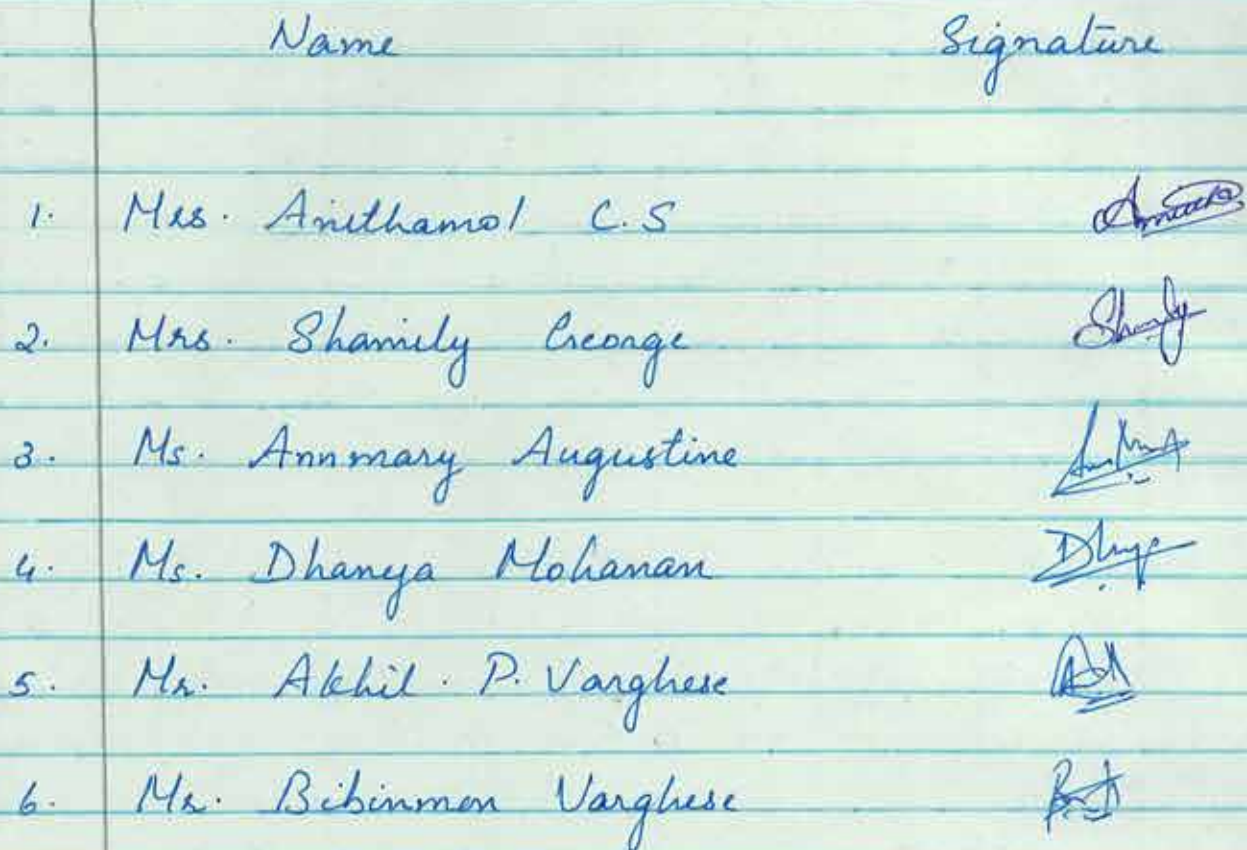 Name Signature
1. Mrs. Anithamol C.S
2. Mrs. Shamily George
3. Ms. Annmary Augustine
4. Ms. Dhanya Mohanan
5. Mr. Akhil. P. Varghese
6. Mr. Bibinmon Varghese